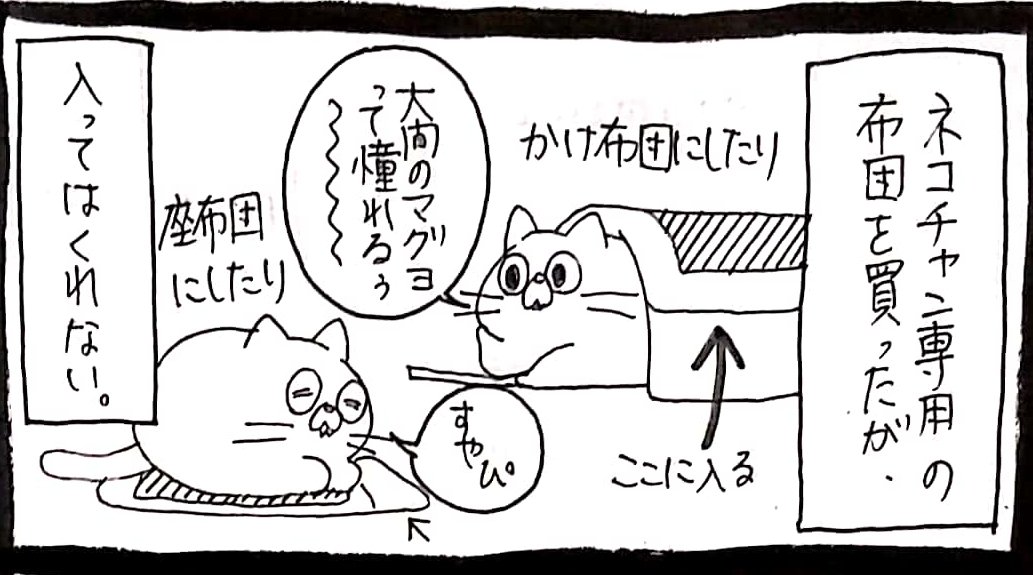 ネコチャン専用の
布団を買ったが、
かけ布団にしたり
ここに入る
大間のマグヨ
って憧れるぅ
〜〜〜〜
座布団
にしたり
すやぴ。
入ってはくれない。